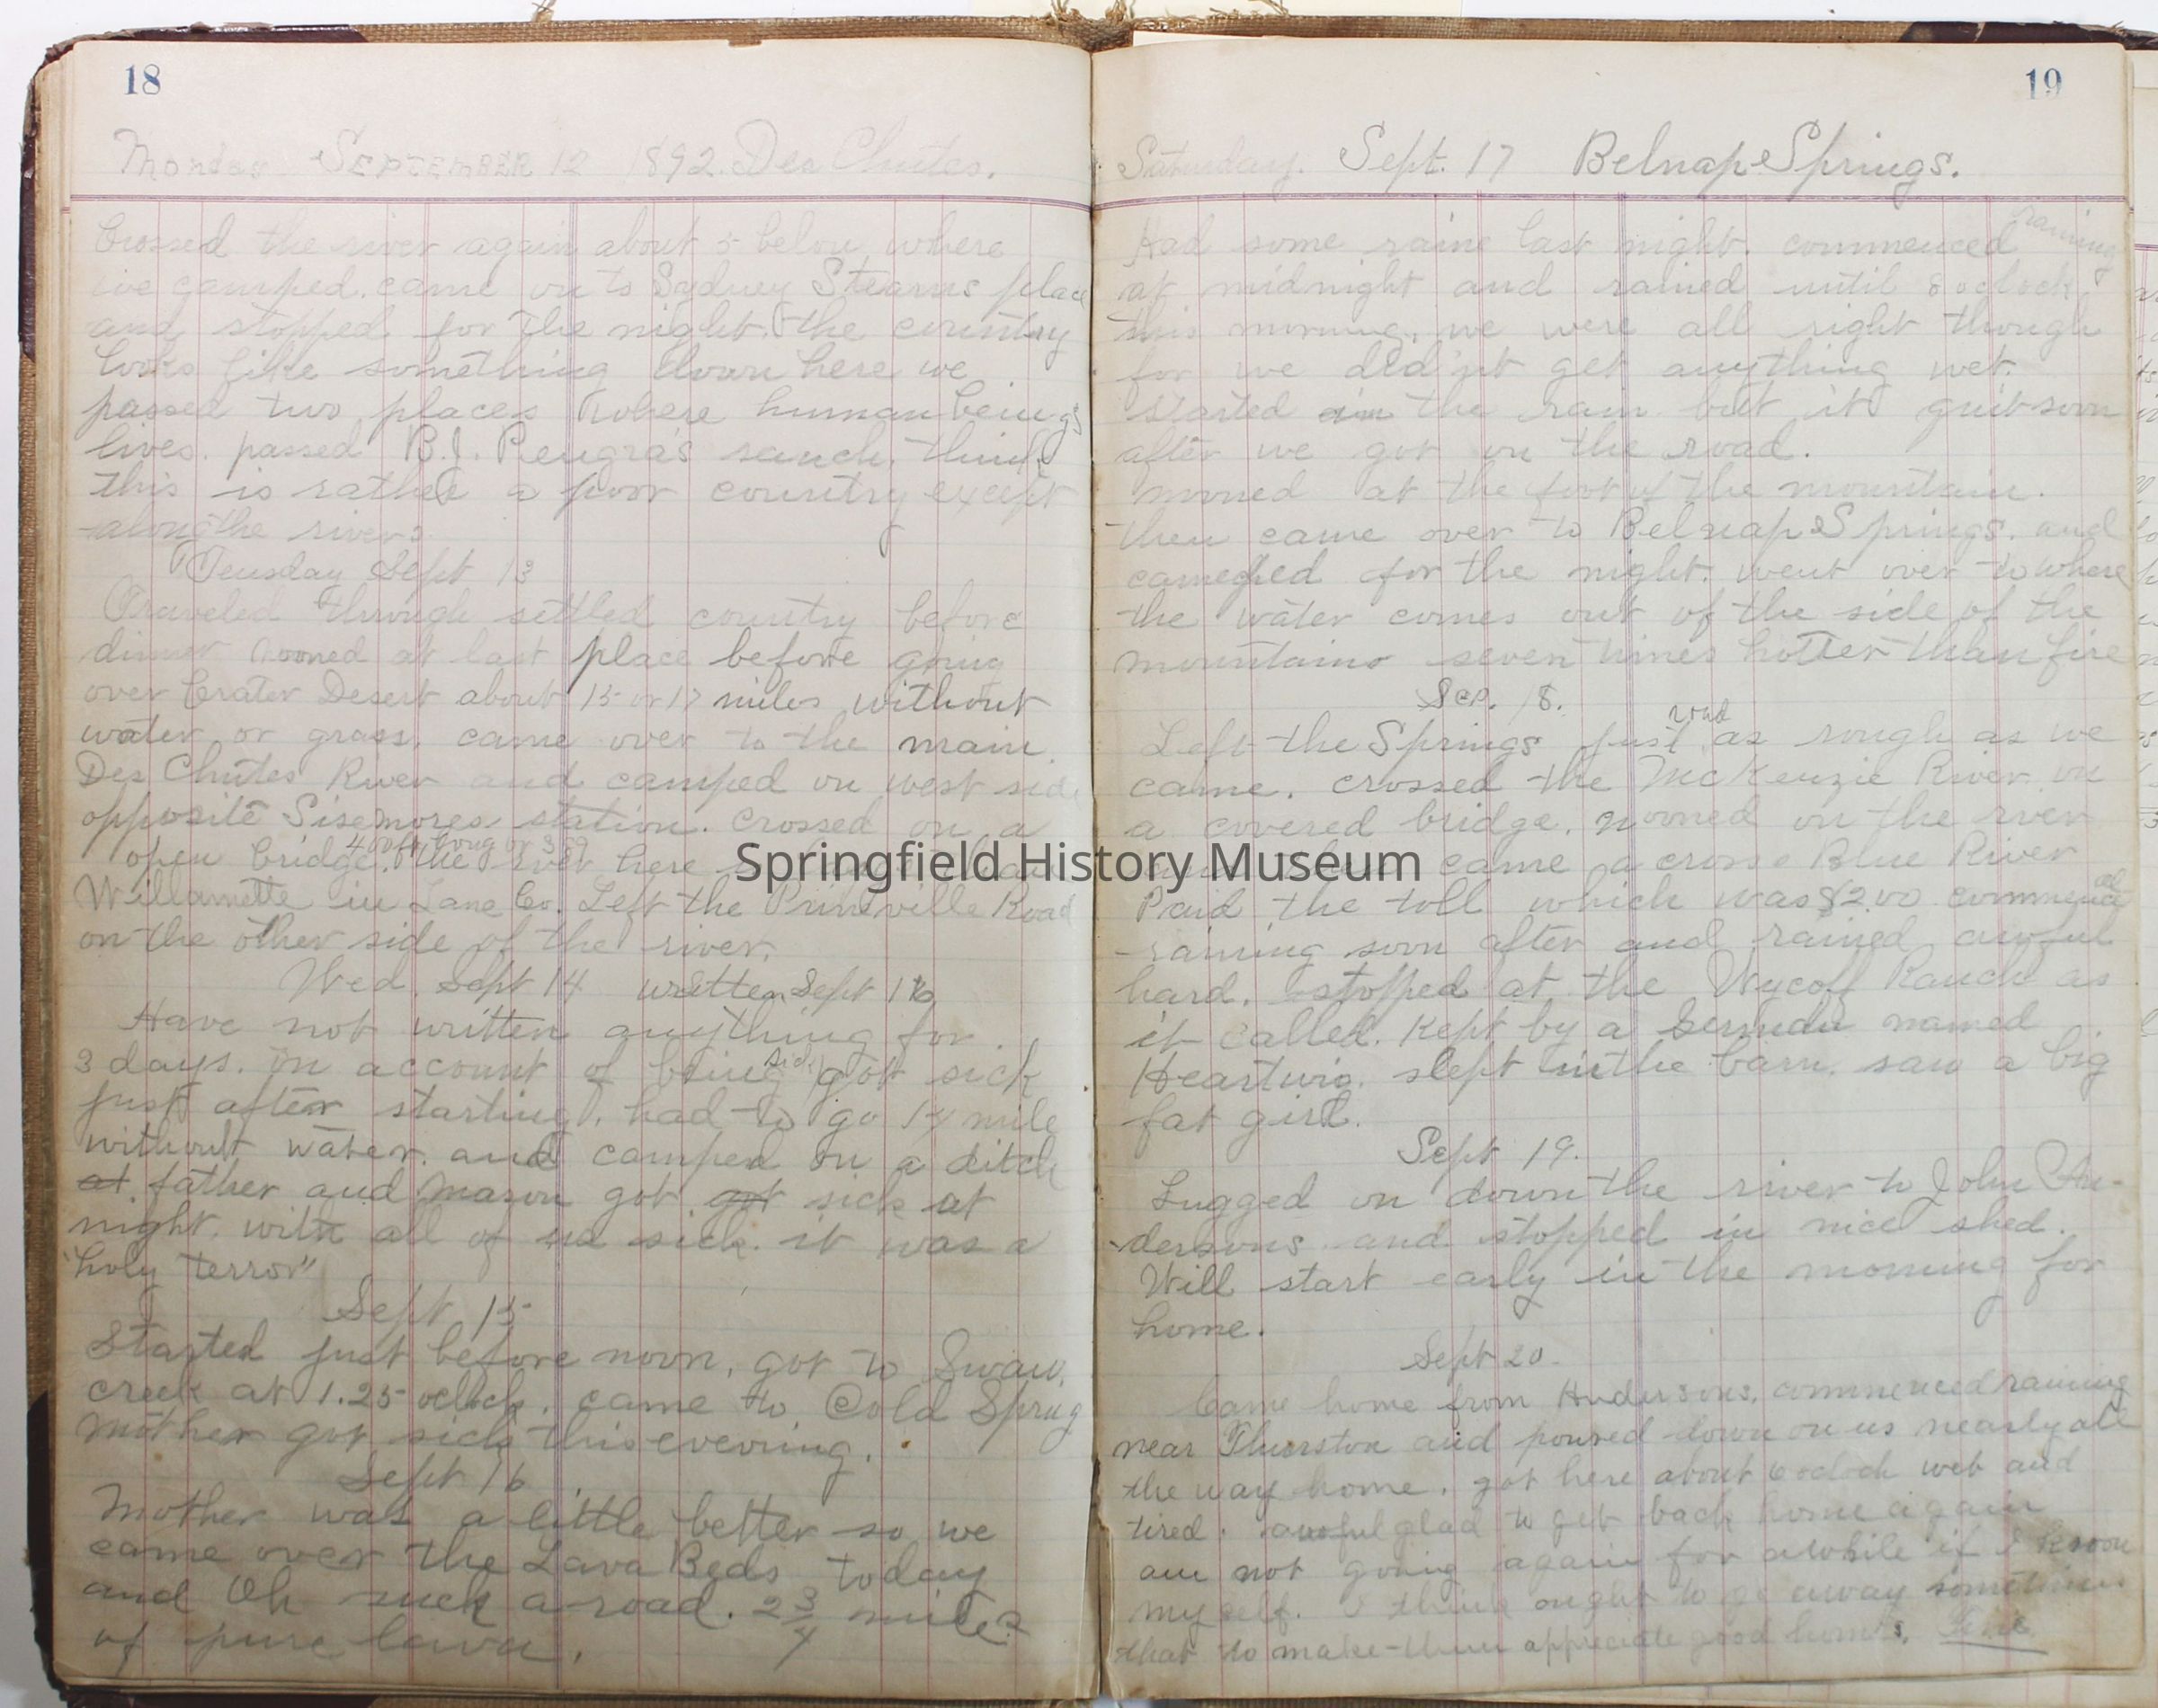 18
Monday SEPTEMBER 12 1892. Des Chutes.
Crossed the river again about 5 below where
we gamped. came on to Sydney Stearns place
and stopped for the night. the country
looks like something down here we
passed two places where human beings
lives. passed B.J. Pengra's ranch. think
this is rather a poor country except
along the rivers
Teusday Sept 13
Traveled through settled country before
dinner nooned at last place before going
over Crater Desert about 15 or 17 miles without
water or grass. came over to the main
Des Chutes River and camped on west side
opposite Sisemores station. Crossed on a
open bridge. the river here
Willamette in Lane Co. Left the Prineville Road
on the other side of the river.
Wed. Sept 14 written Sept 16
Have not written anything for
3 days. on account of being sick got sick
just after starting. had to go 14 mile
without water. and camped on a ditch
at. father and Mason got got sick at
night. with all of us sick. it was a
"holy terror"
Sept 15
Started just before noon, got to Swan,
creek at 1.25 oclock. came to Cold Sprng
Mother got sick this evening.
Sept 16
Mother was a little better so we
came over the Lava Beds today
and Oh such a road. 2 3/4 miles
of pure lava.
19
Saturday. Sept. 17 Belnap Springs.
Had some raine last night. commenced raining
at midnight and rained until 8 oclock
this morning, we were all right though
for we did'nt get anything wet.
started in the rain but it quit soon
after we got on the road.
nooned at the foot of the mountain.
then came over to Belnap Springs. and
camepped for the night. went over to where
the water comes out of the side of the
mountains seven times hotter than fire
Sep. 18.
Left the Springs just road as rough as we
came. crossed the McKenzie River on
a covered bridge. nooned on the river
came acrosse Blue River
Paid the toll which was $2.00 commenced
raining soon after and rained awful
hard. stopped at the Wycoff Ranch as
it called. Kept by a German named
Heartwig. slept in the barn. saw a big
fat girl.
Sept 19.
Lugged on down the river to John An-
dersons and stopped in nice shed.
Will start early in the morning for
home.
Sept 20.
Came home from Andersons. commenced raining
near Thurston and poured down on us nearly all
the way home. got here about 6 oclock wet and
tired. awful glad to get back home again
am not going again for awhile if I know
myself. I think ought to go away sometimes
that to make them appreciate good homes.
Springfield History Museum